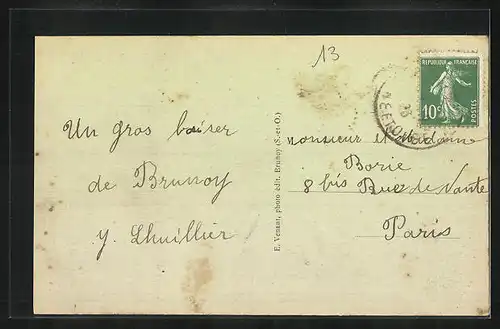 13
REPUBLIQUE FRANÇAISE
10c
POSTES
Un gros baiser
de Brunoy
y. Lhuillier
E. Vensat, photo édit. Brunoy (S.-et-O.)
Monsieur et Madame
Borie
8 bis Rue de Nante
Paris